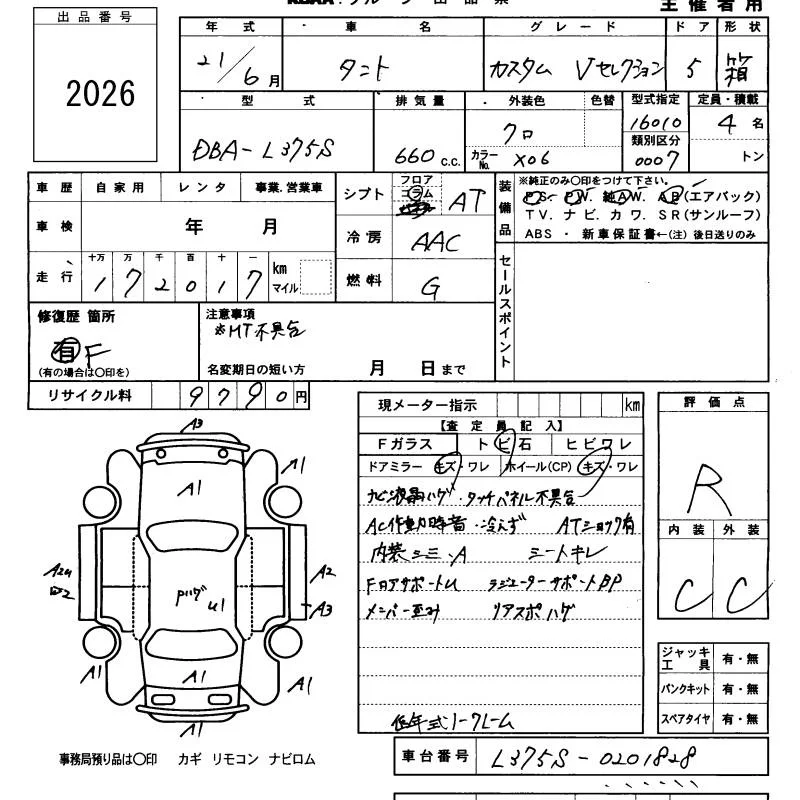 主催者用
出品番号
2026
年式 車名 グレード ドア 形状
21/6月 タント カスタム Vセレクション 5 箱
型式 排気量 外装色 色替 型式指定 定員・積載
DBA-L375S 660 C.C. クロ 16010 4名
カラーNo. X06 類別区分 0007 トン
車歴 自家用 レンタ 事業.営業車
車検 年 月
走行 十万 万 千 百 十 一 km マイル
1 7 2 0 1 7
シフト フロア コラム AT
冷房 AAC
燃料 G
装備品
※純正のみ〇印をつけて下さい。
PS. PW. 純AW. AB(エアバック)
TV. ナビ. カワ. SR(サンルーフ)
ABS ・ 新車保証書←(注) 後日送りのみ
セールスポイント
修復歴 箇所
有 F
(有の場合は〇印を)
注意事項
※MT不具合
名変期日の短い方 月 日まで
リサイクル料 9790円
現メーター指示 km
【査定員記入】
Fガラス トビ石 ヒビワレ
ドアミラー キズ・ワレ ホイール(CP) キズ・ワレ
ナビ液晶ハゲ・タッチパネル不具合
AC作動時音・冷えず ATショック有
内装シミ・A シートキレ
Fロアサポートu ラジエーターサポートBP
メンバー歪み リアスポハゲ
低年式ノークレーム
評価点
R
内装 外装
C C
ジャッキ工具 有・無
パンクキット 有・無
スペアタイヤ 有・無
A3
A1
A1
A2
A2
A3
Pハゲ
u1
A1
A1
A1
A1
事務局預り品は〇印 カギ リモコン ナビロム
車台番号 L375S-0201828